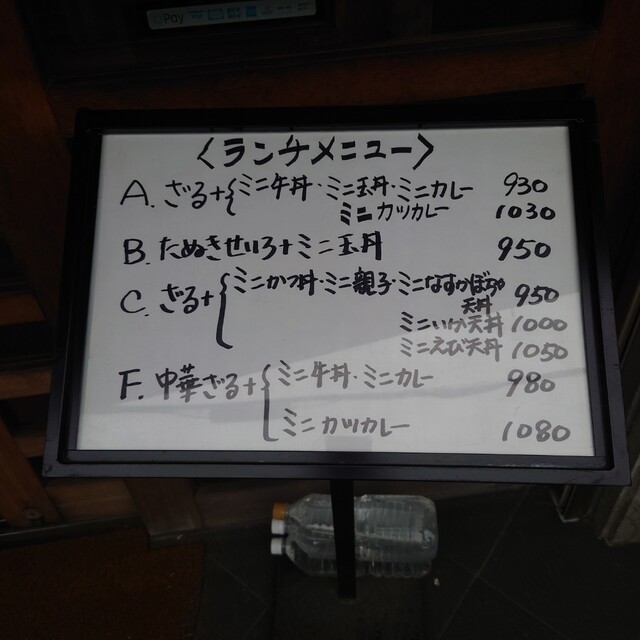 Pay
〈ランチメニュー〉
A. ざる+{ミニ牛丼・ミニ玉丼・ミニカレー 930
ミニカツカレー 1030
B. たぬきせいろ+ミニ玉丼 950
C. ざる+{ミニかつ丼・ミニ親子・ミニなすかぼちゃ 950
天丼
ミニいか天丼 1000
ミニえび天丼 1050
F. 中華ざる+{ミニ牛丼・ミニカレー 980
ミニカツカレー 1080